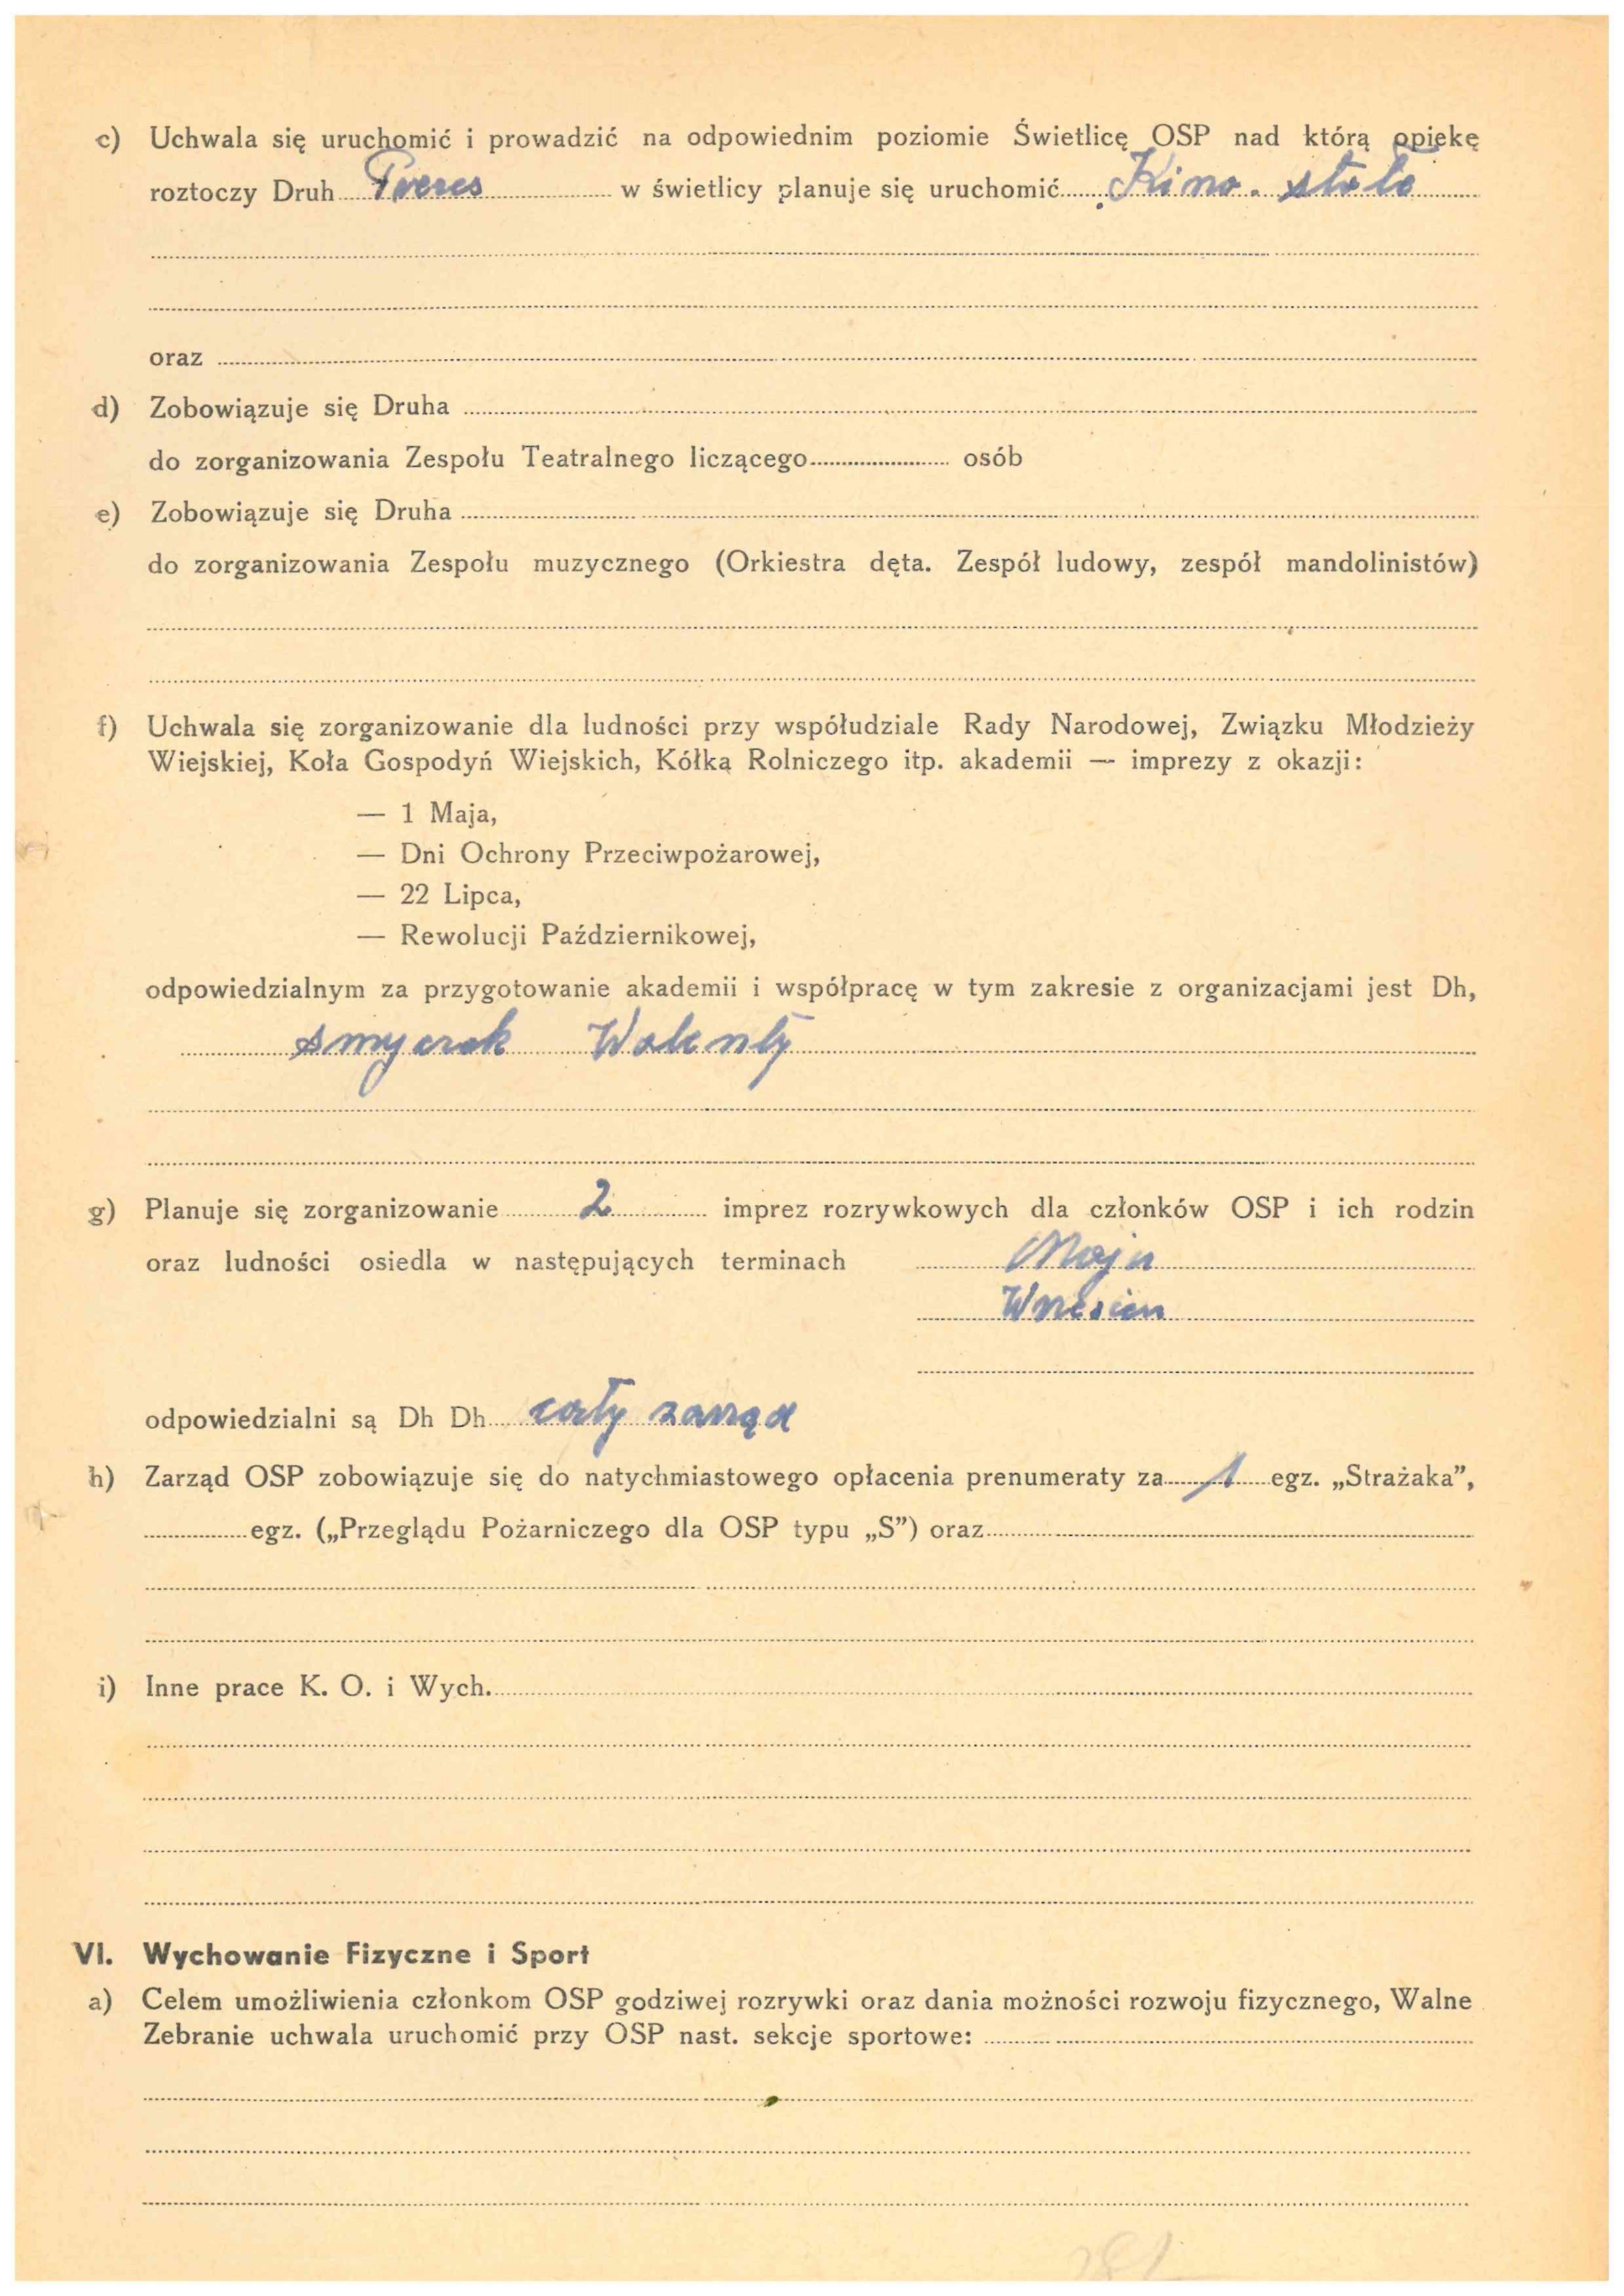 c) Uchwala się uruchomić i prowadzić na odpowiednim poziomie Świetlicę OSP nad którą opiekę
roztoczy Druh Preres w świetlicy planuje się uruchomić Kino. stałe
oraz
d) Zobowiązuje się Druha
do zorganizowania Zespołu Teatralnego liczącego osób
e) Zobowiązuje się Druha
do zorganizowania Zespołu muzycznego (Orkiestra dęta. Zespół ludowy, zespół mandolinistów)
f) Uchwala się zorganizowanie dla ludności przy współudziale Rady Narodowej, Związku Młodzieży
Wiejskiej, Koła Gospodyń Wiejskich, Kółka Rolniczego itp. akademii — imprezy z okazji:
— 1 Maja,
— Dni Ochrony Przeciwpożarowej,
— 22 Lipca,
— Rewolucji Październikowej,
odpowiedzialnym za przygotowanie akademii i współpracę w tym zakresie z organizacjami jest Dh,
Smyczek Walenty
g) Planuje się zorganizowanie 2 imprez rozrywkowych dla członków OSP i ich rodzin
oraz ludności osiedla w następujących terminach Maju
Wrzesien
odpowiedzialni są Dh Dh cały zarząd
h) Zarząd OSP zobowiązuje się do natychmiastowego opłacenia prenumeraty za 1 egz. „Strażaka”,
egz. („Przeglądu Pożarniczego dla OSP typu „S”) oraz
i) Inne prace K. O. i Wych.
VI. Wychowanie Fizyczne i Sport
a) Celem umożliwienia członkom OSP godziwej rozrywki oraz dania możności rozwoju fizycznego, Walne
Zebranie uchwala uruchomić przy OSP nast. sekcje sportowe: